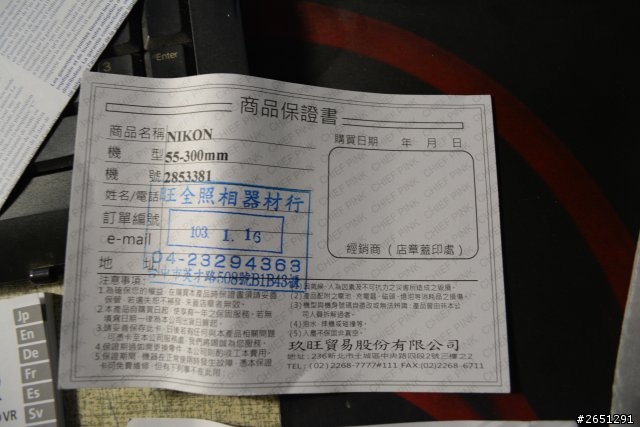 Enter
商品保證書
商品名稱 NIKON
購買日期 年 月 日
機 型 55-300mm
機 號 2853381
姓名/電話
旺全照相器材行
訂單編號
103 1. 16
e-mail
04-23294363
地 址
台中市英才路508號B1B43號
經銷商(店章蓋印處)
注意事項:
1.為確保您的權益,在購買本產品時保證書須請妥善
保管,若遺失恕不補發,未蓋店章者無效。
2.本產品自購買日起,使享有一年之保固服務,若無
填寫日期一律為本公司出貨日為起日。
3.請妥善保存此卡,日後若有任何與本產品相關問題
可憑卡至本公司洽詢處,我們將竭誠為您服務。
4.保證期過間需送修件,本公司則酌收工本費用。
5.保證期間,機器在正常使用時發生故障,憑本保證
卡可免費維修,但有下列事不在此限:
人為因素及不可抗力之災害所造成之毀損。
(2)產品配附之電池、充電器、
等消耗品之損傷。
(3)機型與機身號碼自遭改或無法辨識;產品曾由非本公
司人員拆解過者。
(4)泡水、摔機或碰撞等。
(5)人為不保固非真空。
玖旺貿易股份有限公司
地址:236新北市土城區中央路四段2號三樓之2
TEL:(02)2268-7777#111 FAX:(02)2268-6711
CHIEF PINK
Jp
En
De
Fr
Es
Sv
VR
#2651291